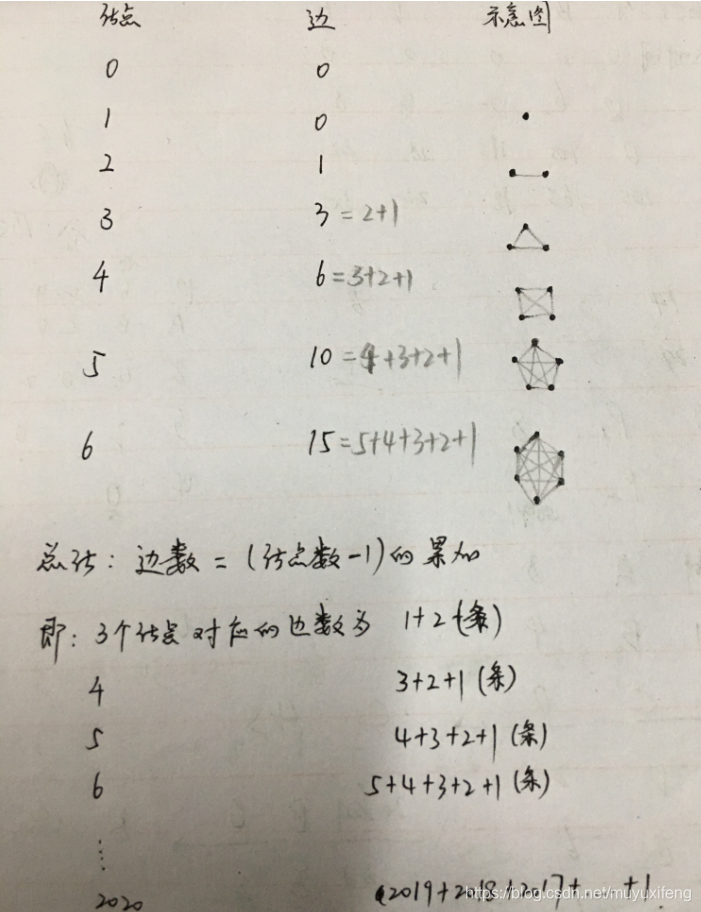 结点 边 示意图
0 0
1 0
2 1
3 3=2+1
4 6=3+2+1
5 10=4+3+2+1
6 15=5+4+3+2+1
总结：边数=(结点数-1)的累加
即：3个结点对应的边数为 1+2(条)
4 3+2+1(条)
5 4+3+2+1(条)
6 5+4+3+2+1(条)
⋮
2020 2019+2018+2017+...+1.
https://blog.csdn.net/muyuxifeng